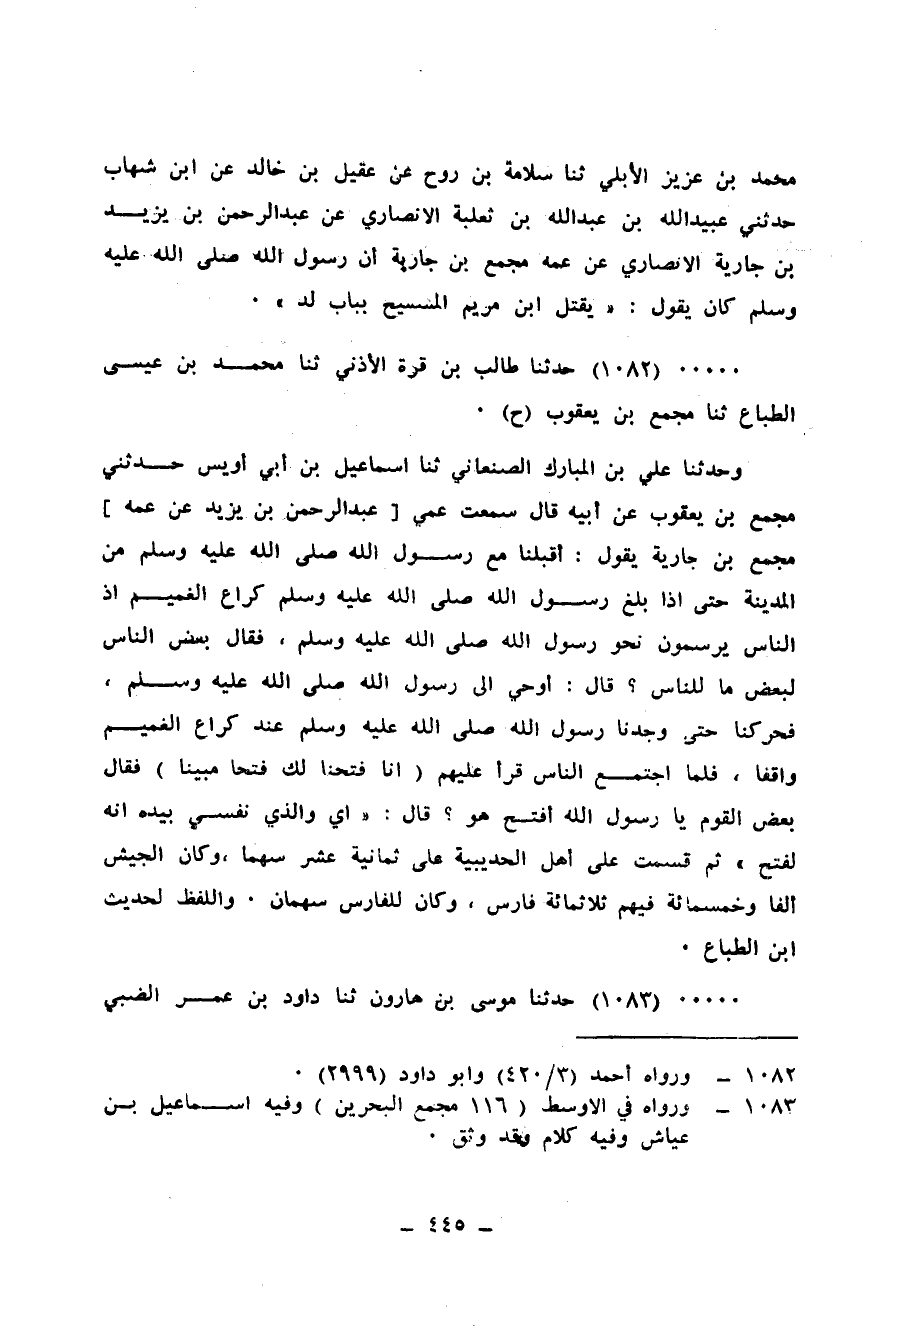 محمد بن عزيز الأبلي ثنا سلامة بن روح عن عقيل بن خالد عن ابن شهاب
حدثني عبيدالله بن عبدالله بن ثعلبة الانصاري عن عبدالرحمن بن يزيد
بن جارية الانصاري عن عمه مجمع بن جارية أن رسول الله صلى الله عليه
وسلم كان يقول : « يقتل ابن مريم المسيح بباب لد » ٠
٠٠٠٠٠ (١٠٨٢) حدثنا طالب بن قرة الأذني ثنا محمد بن عيسى
الطباع ثنا مجمع بن يعقوب (ح) ٠
وحدثنا علي بن المبارك الصنعاني ثنا اسماعيل بن أبي أويس حدثني
مجمع بن يعقوب عن أبيه قال سمعت عمي [ عبدالرحمن بن يزيد عن عمه ]
مجمع بن جارية يقول : أقبلنا مع رسول الله صلى الله عليه وسلم من
المدينة حتى اذا بلغ رسول الله صلى الله عليه وسلم كراع الغميم اذ
الناس يرسمون نحو رسول الله صلى الله عليه وسلم ، فقال بعض الناس
لبعض ما للناس ؟ قال : أوحي الى رسول الله صلى الله عليه وسلم ،
فحركنا حتى وجدنا رسول الله صلى الله عليه وسلم عند كراع الغميم
واقفا ، فلما اجتمع الناس قرأ عليهم ( انا فتحنا لك فتحا مبينا ) فقال
بعض القوم يا رسول الله أفتح هو ؟ قال : « اي والذي نفسي بيده انه
لفتح » ثم قسمت على أهل الحديبية على ثمانية عشر سهما ،وكان الجيش
ألفا وخمسمائة فيهم ثلاثمائة فارس ، وكان للفارس سهمان ٠ واللفظ لحديث
ابن الطباع ٠
٠٠٠٠٠ (١٠٨٣) حدثنا موسى بن هارون ثنا داود بن عمر الضبي
١٠٨٢ – ورواه أحمد (٤٢٠/٣) وابو داود (٢٩٩٩) ٠
١٠٨٣ – ورواه في الاوسط ( ١١٦ مجمع البحرين ) وفيه اسماعيل بن
عياش وفيه كلام وقد وثق ٠
– ٤٤٥ –